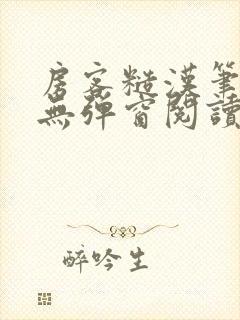 房客糙漢筆
無彈窗閱讀
醉吟生